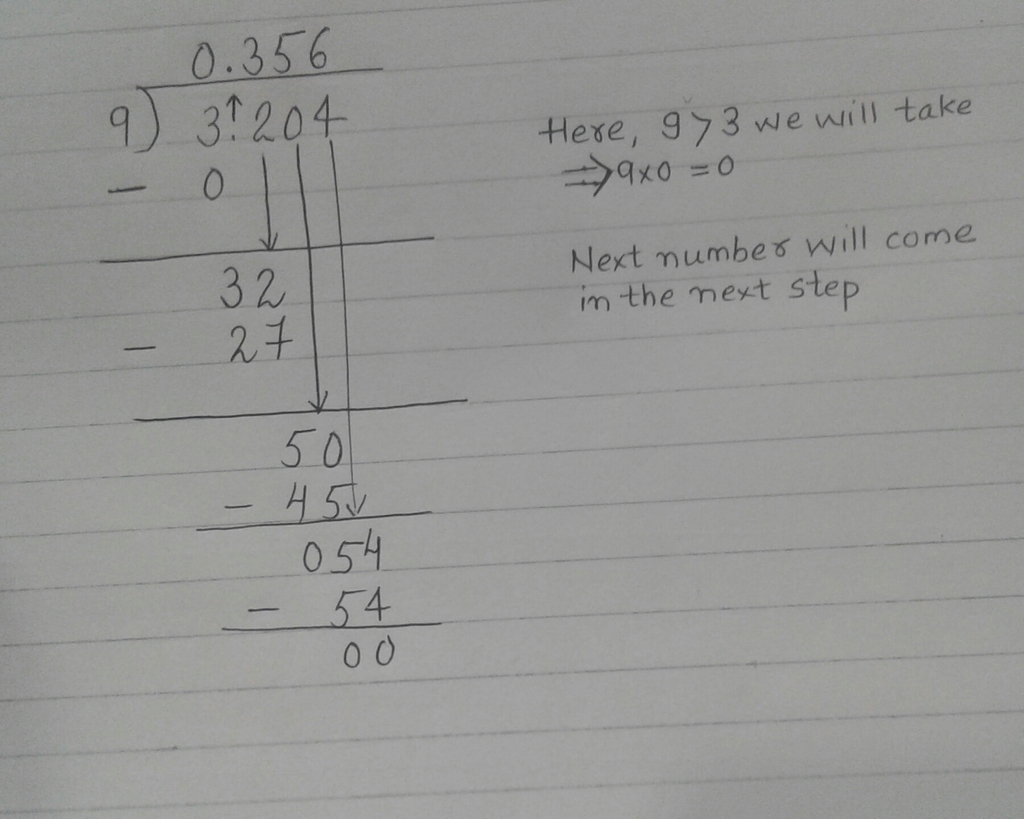 0.356
9) 3.204
- 0
32
- 27
50
- 45
054
- 54
00
Here, 9>3 we will take
⇒9x0 = 0
Next number will come
in the next step